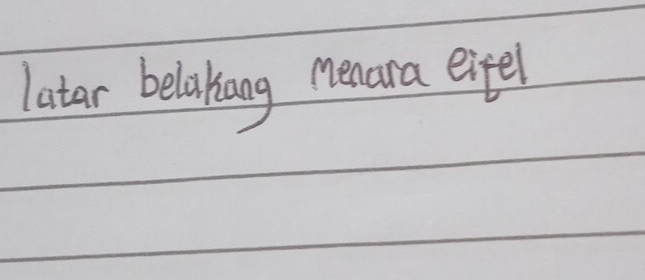 latar belakang Menara eifel